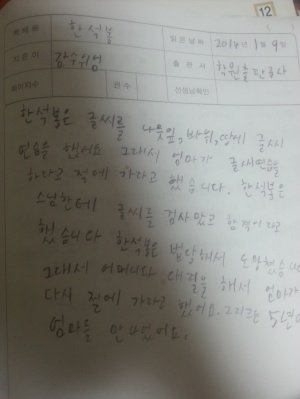 12
책제목 한석봉 읽은날짜 2014년 1월 9일
지은이 출판사
페이지수 권수 선생님확인
한석봉은 글씨를 나뭇잎, 바위, 땅에 글씨
연습을 했어요 그래서 엄마가 글씨연습을
하라고 절에 가라고 했습니다. 한석봉은
스님한테 글씨를 검사맞고 합격이라고
했습니다 한석봉은 답답해서 도망쳤습니
그래서 어머니와 대결을 해서 엄마가
다시 절에 가라고 했어요. 그리고 5년
엄마를 만났어요.